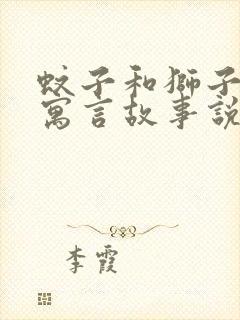 蚊子和獅子
寓言故事說
李霞